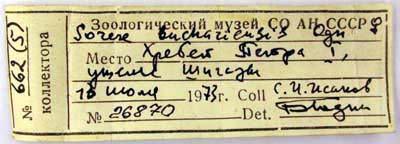 № 662 (5)
коллектора
Зоологический музей СО АН СССР ♀
Sorex buchariensis Ogn
Место Хребет Петра I,
ущелье
10 июля 1973 г. Coll С. И. Исаков
№ 26870 Det.